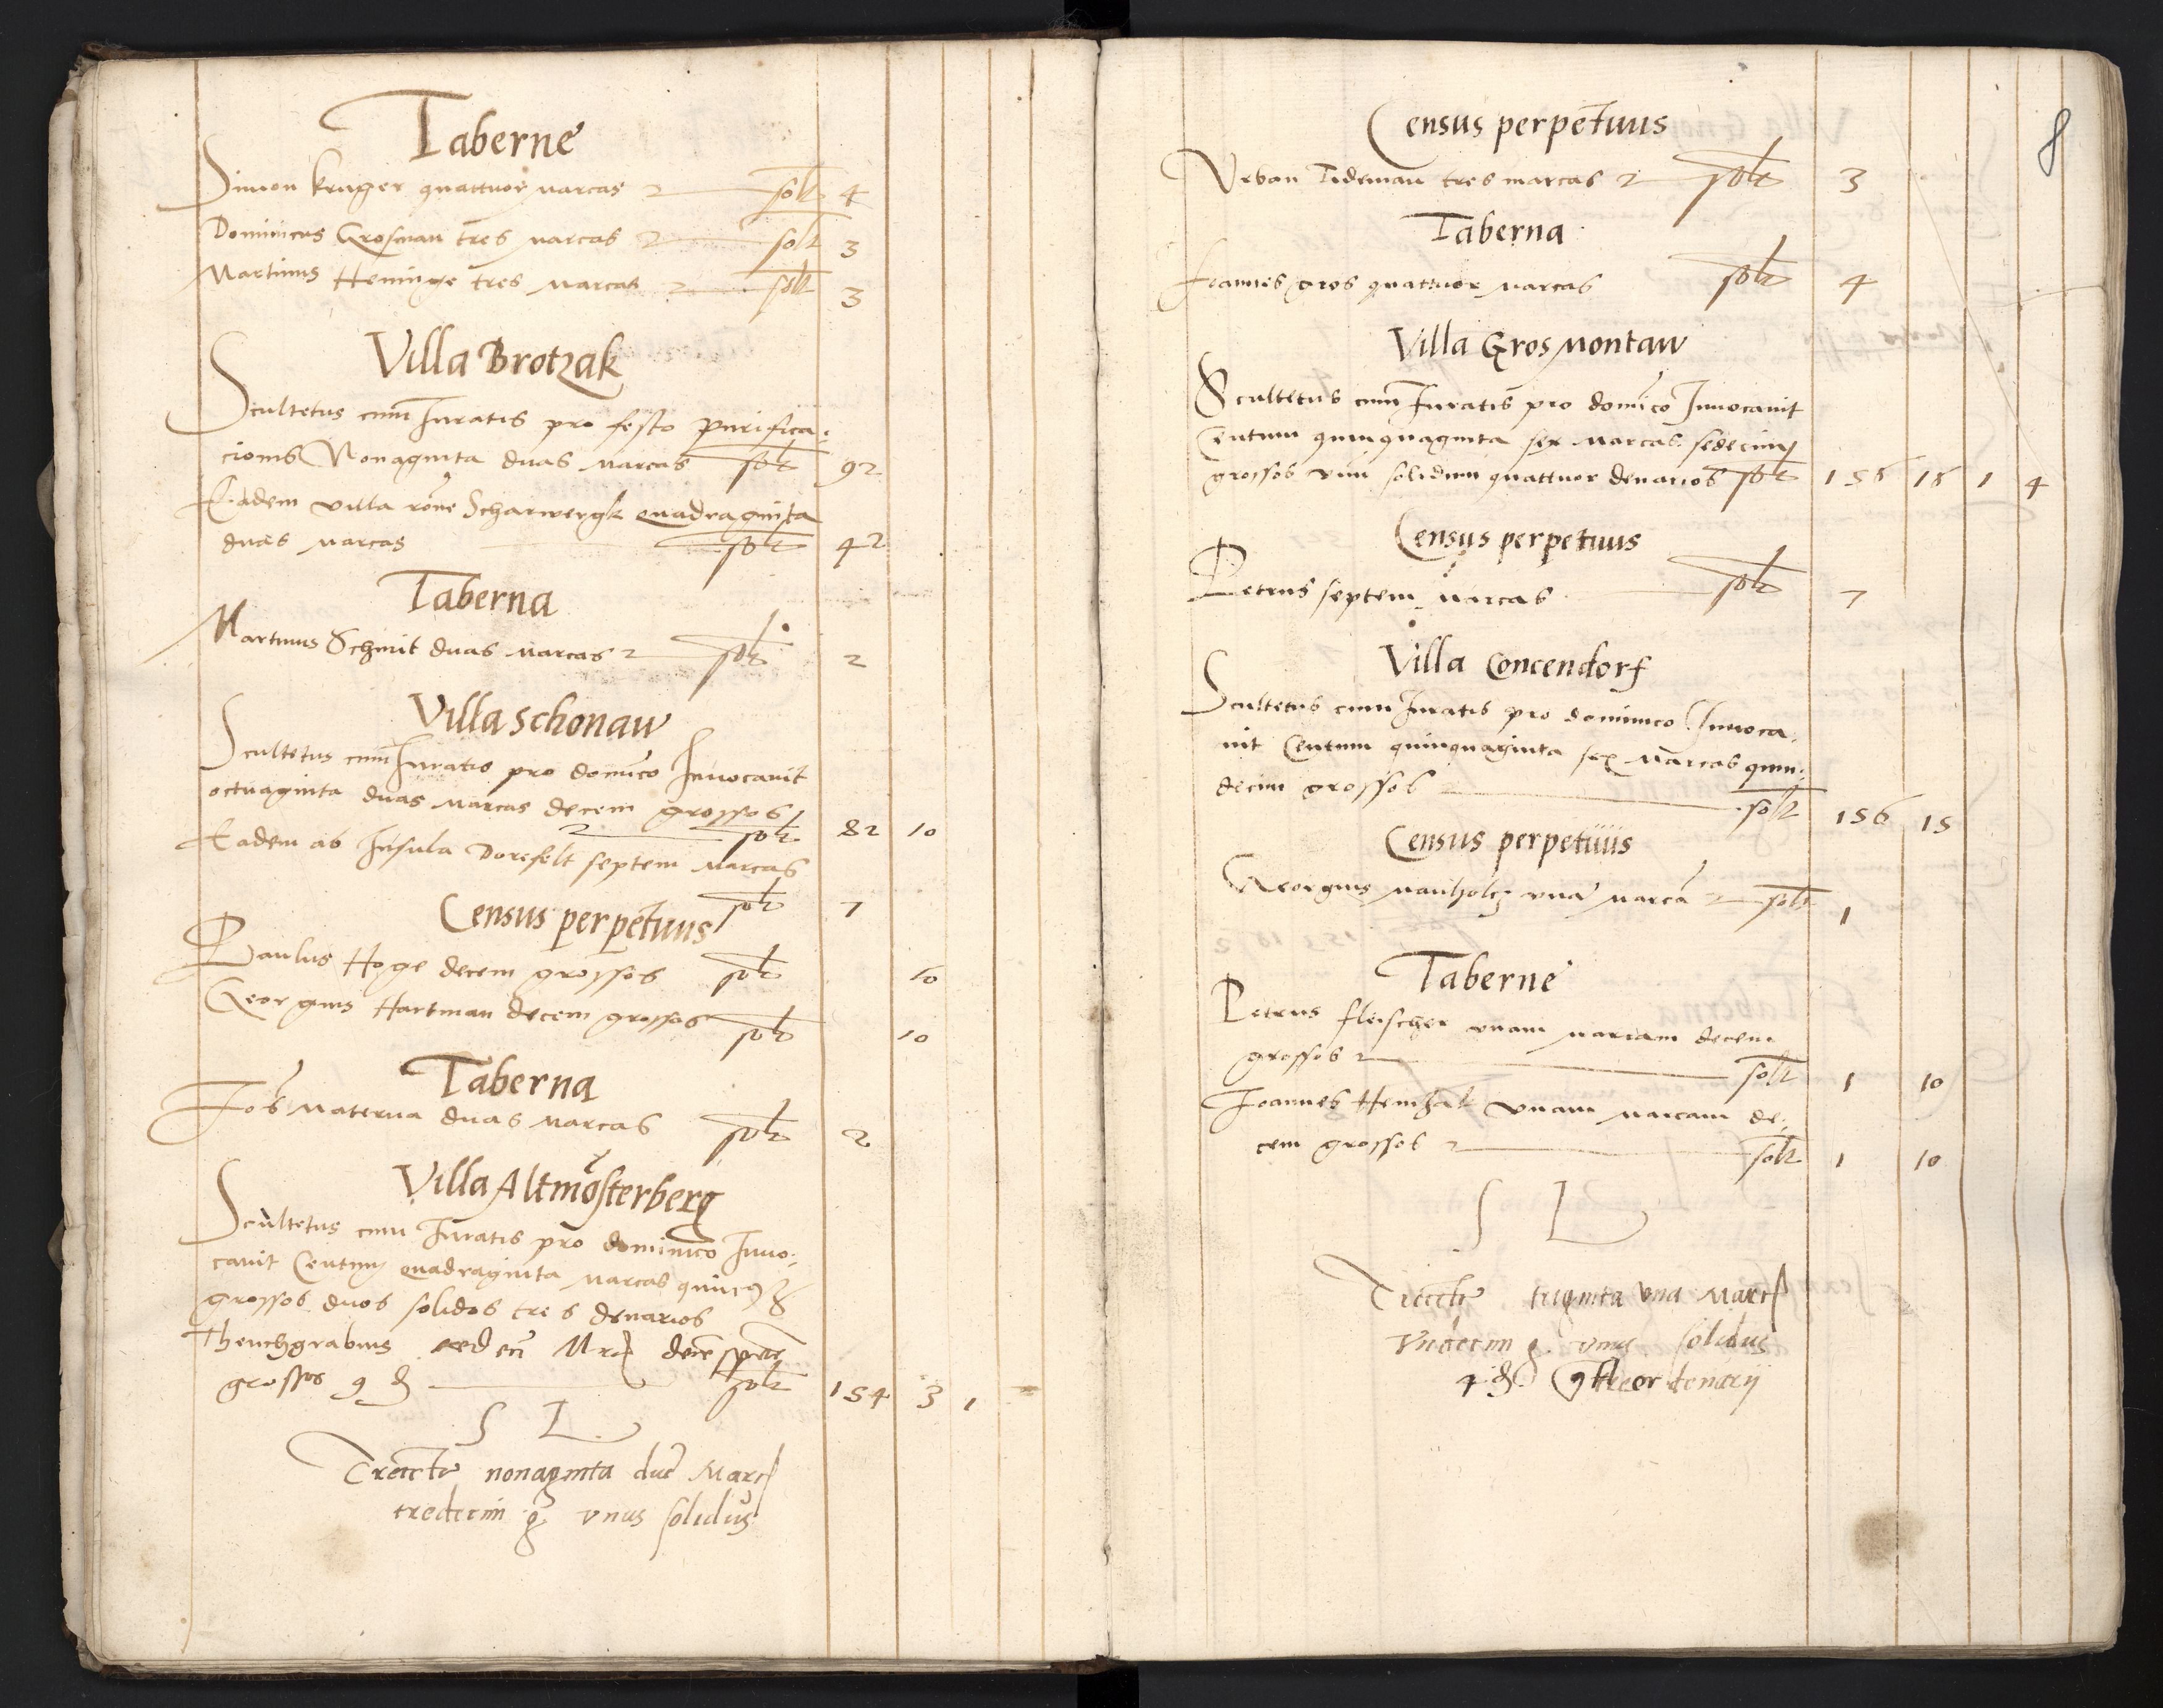 Taberne
Simon Kruger quattuor marcas solt 4
Dominicus Grosman tres marcas solt 3
Martinus Heninge tres marcas solt 3
Villa Brotzak
Scultetus cum Juratis pro festo purifica:
cionis Nonaginta duas marcas solt 92
Eadem villa rone Scharwergk quadraginta
duas marcas solt 42
Taberna
Martinus Schmit duas marcas solt 2
Villa Schonaw
Scultetus cum Juratis pro domico Invocavit
octuaginta duas marcas decem grossos
solt 82 10
Eadem ab Insula Dorefelt septem marcas
solt 7
Census perpetuus
Paulus Hoge decem grossos solt 10
Georgius Hartman decem grossos solt 10
Taberna
Jos Materna duas marcas solt 2
Villa Altmösterberg
Scultetus cum Juratis pro dominico Invo:
cavit Centum quadraginta marcas quinq
grossos duos solidos tres denarios
Thenchgrabius Mrc
grossos 9 solt 154 3 1
S L
nonaginta due Marc
tredecim g unus solidus
8
Census perpetuus
Urban Tideman tres marcas solt 3
Taberna
Joannes gros quattuor marcas solt 4
Villa Gros Montaw
Scultetus cum Juratis pro domico Invocavit
Centum quinquaginta sex marcas sedecim
grossos unum solidum quattuor denarios solt 156 16 1 4
Census perpetuus
Petrus septem marcas solt 7
Villa Concendorf
Scultetus cum Juratis pro dominico Invoca:
vit Centum quinquaginta sex marcas quin:
decim grossos
solt 156 15
Census perpetuus
Georgius Manholcz una marca solt 1
Taberne
Petrus fleischer unam marcam decem
grossos solt 1 10
Joannes Hemzak unam marcam de:
cem grossos solt 1 10
S L
triginta una Marc
Undecim g. unus solidus
4 denarij